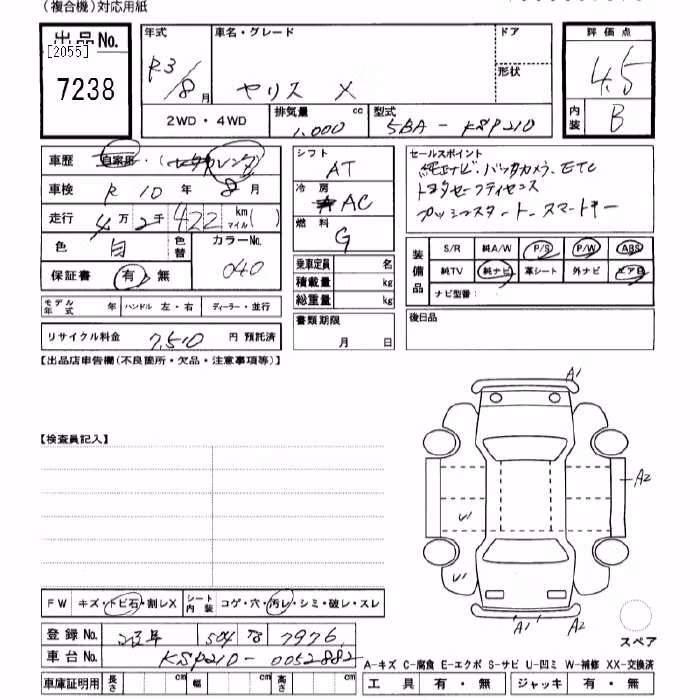 (複合機)対応用紙
出品No.
[2055]
7238
年式 R3/8月
車名・グレード ヤリス X
ドア
形状
評価点 4.5
内装 B
2WD・4WD
排気量 1,000 cc
型式 5BA-KSP210
車歴 自家用・(レンタカー レンタ)
車検 R 10 年 8 月
走行 4万2千422 km マイル( )
色 白 色替 カラーNo. 040
保証書 有・無
シフト AT
冷房 AC
燃料 G
セールスポイント
純正ナビ. バックカメラ. ETC
トヨタセーフティセンス
プッシュスタート. スマートキー
乗車定員 名
積載量 kg
総重量 kg
装備品
S/R 純A/W P/S P/W ABS
純TV 純ナビ 革シート 外ナビ エアB
ナビ型番:
モデル年式 年 ハンドル 左・右 ディーラー・並行
書類期限 月 日
後日品
リサイクル料金 7,510 円 預託済
【出品店申告欄(不良箇所・欠品・注意事項等)】
A1
【検査員記入】
A2
U1
U1
"A1" A2
FW キズ・トビ石・割レX シート内装 コゲ・穴・汚レ・シミ・破レ・スレ
スペア
登録No. 504 7976
車台No. KSP210-0052882
A-キズ C-腐食 E-エクボ S-サビ U-凹ミ W-補修 XX-交換済
車庫証明用 長さ cm 幅 cm 高さ cm
工具 有・無 ジャッキ 有・無